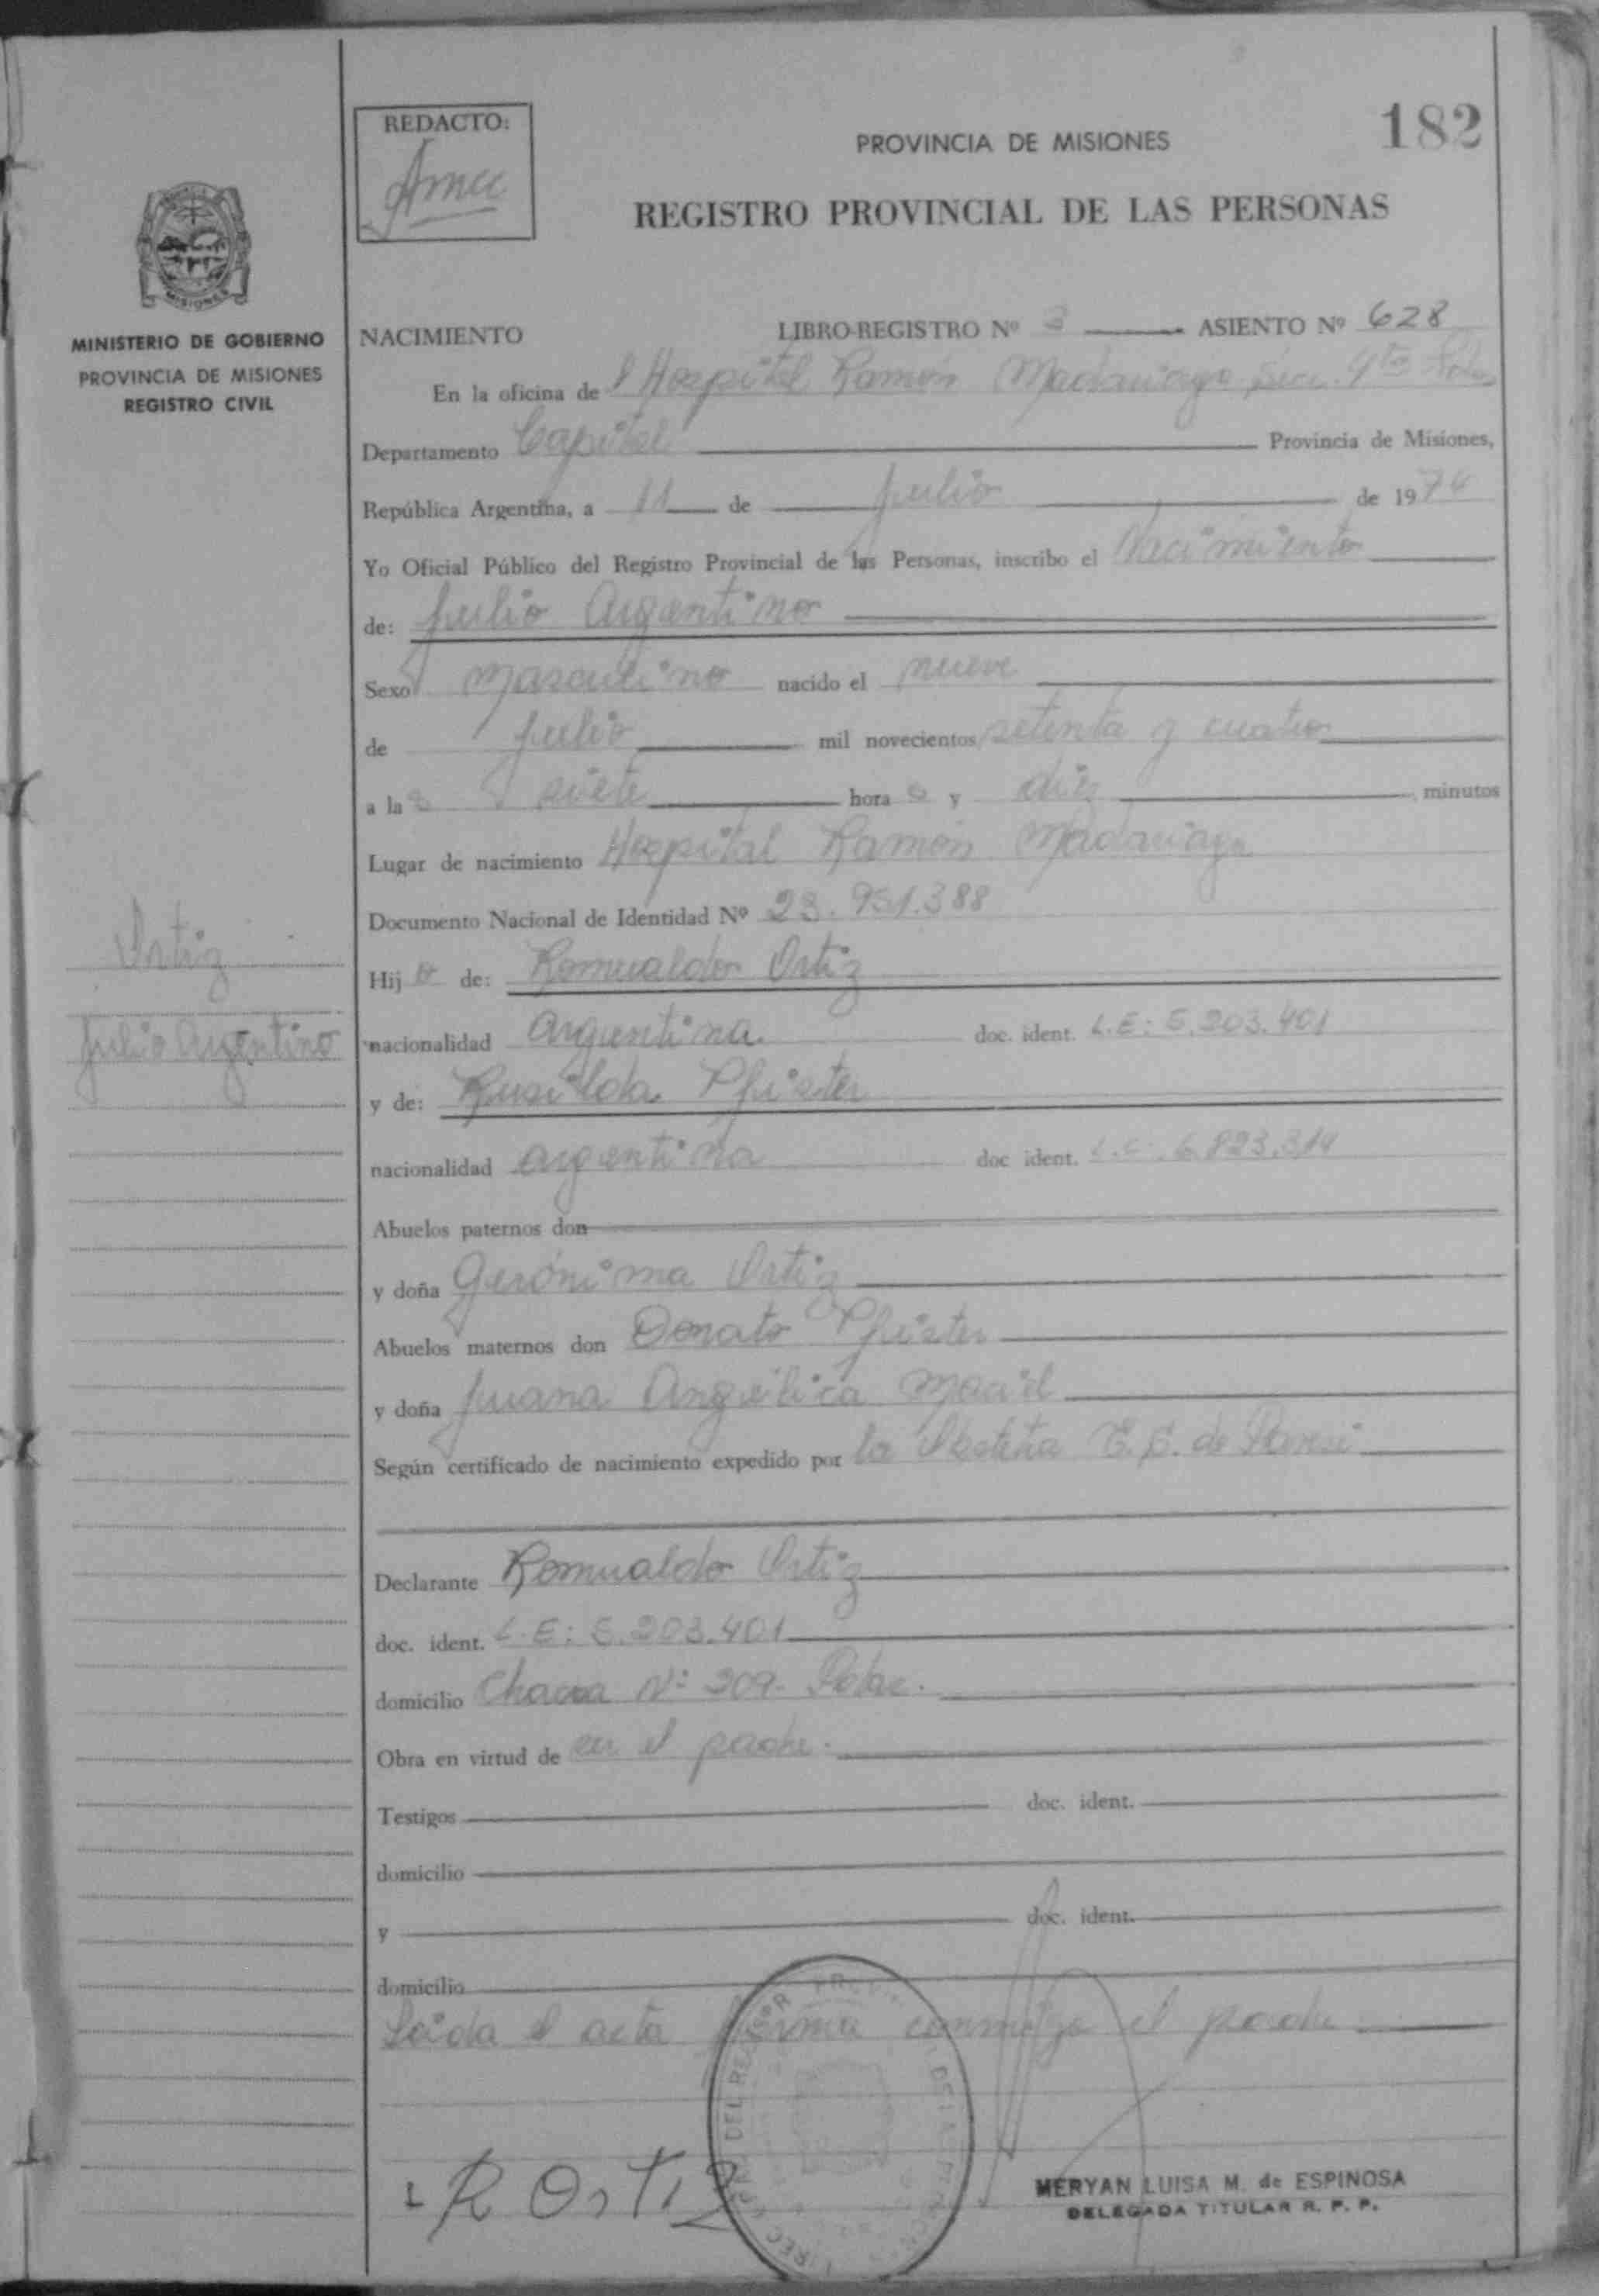 182
REDACTÓ:
PROVINCIA DE MISIONES
REGISTRO PROVINCIAL DE LAS PERSONAS
MISIONES
MINISTERIO DE GOBIERNO
PROVINCIA DE MISIONES
REGISTRO CIVIL
NACIMIENTO LIBRO-REGISTRO Nº 3 ASIENTO Nº 628
En la oficina de l Hospital Ramón Madariaga, Secc. 4ta
Departamento Capital Provincia de Misiones,
República Argentina, a 11 de julio de 1974
Yo Oficial Público del Registro Provincial de las Personas, inscribo el Nacimiento
de: Julio Argentino
Sexo Masculino nacido el nueve
de julio mil novecientos setenta y cuatro
a las siete horas y diez minutos
Lugar de nacimiento Hospital Ramón Madariaga
Documento Nacional de Identidad Nº 23.951.388
Ortiz
Julio Argentino
Hijo de: Romualdo Ortiz
nacionalidad argentina doc. ident. L.E: 5.203.401
y de: Rusilda Pfister
nacionalidad argentina doc ident. L.C: 6.823.314
Abuelos paternos don
y doña Gerónima Ortiz
Abuelos maternos don Donato Pfister
y doña Juana Angélica Maciel
Según certificado de nacimiento expedido por la Obstetra E. E. de
Declarante Romualdo Ortiz
doc. ident. L.E: 5.203.401
domicilio Chacra Nº 209-
Obra en virtud de ser el padre.
Testigos doc. ident.
domicilio
y doc. ident.
domicilio
Leída el acta firma conmigo el padre
R Ortiz
MERYAN LUISA M. de ESPINOSA
DELEGADA TITULAR R. P. P.